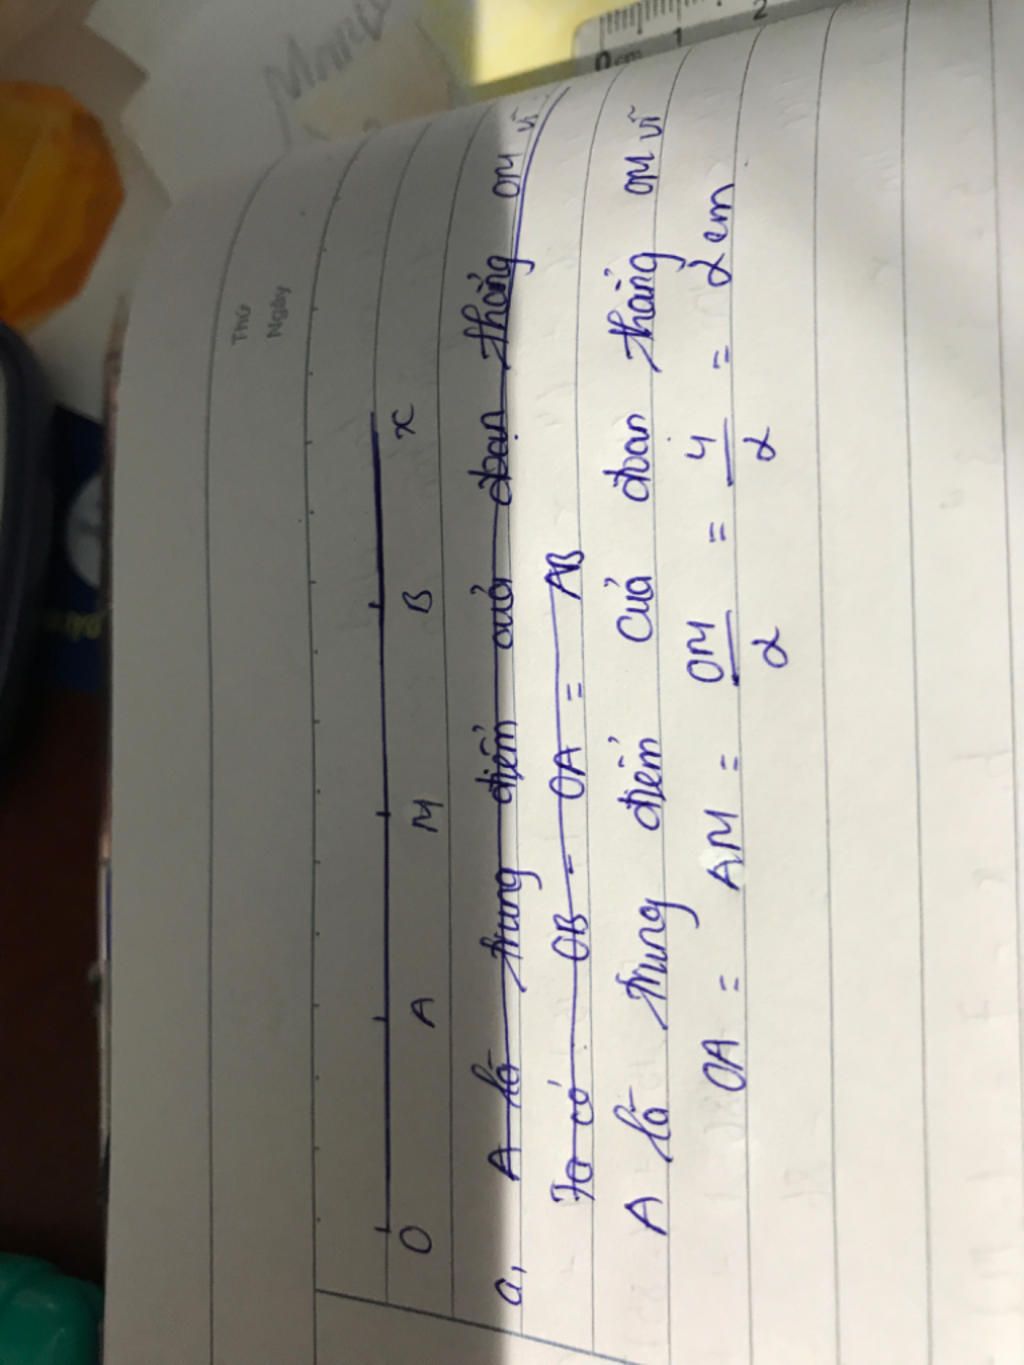 Thứ
Ngày
O A M B x
a, A là trung điểm của đoạn thẳng OM vì
Ta có OB - OA = AB
A là trung điểm của đoan thẳng OM vĩ
OA = AM = OM/2 = 4/2 = 2 cm
0 cm 1 2